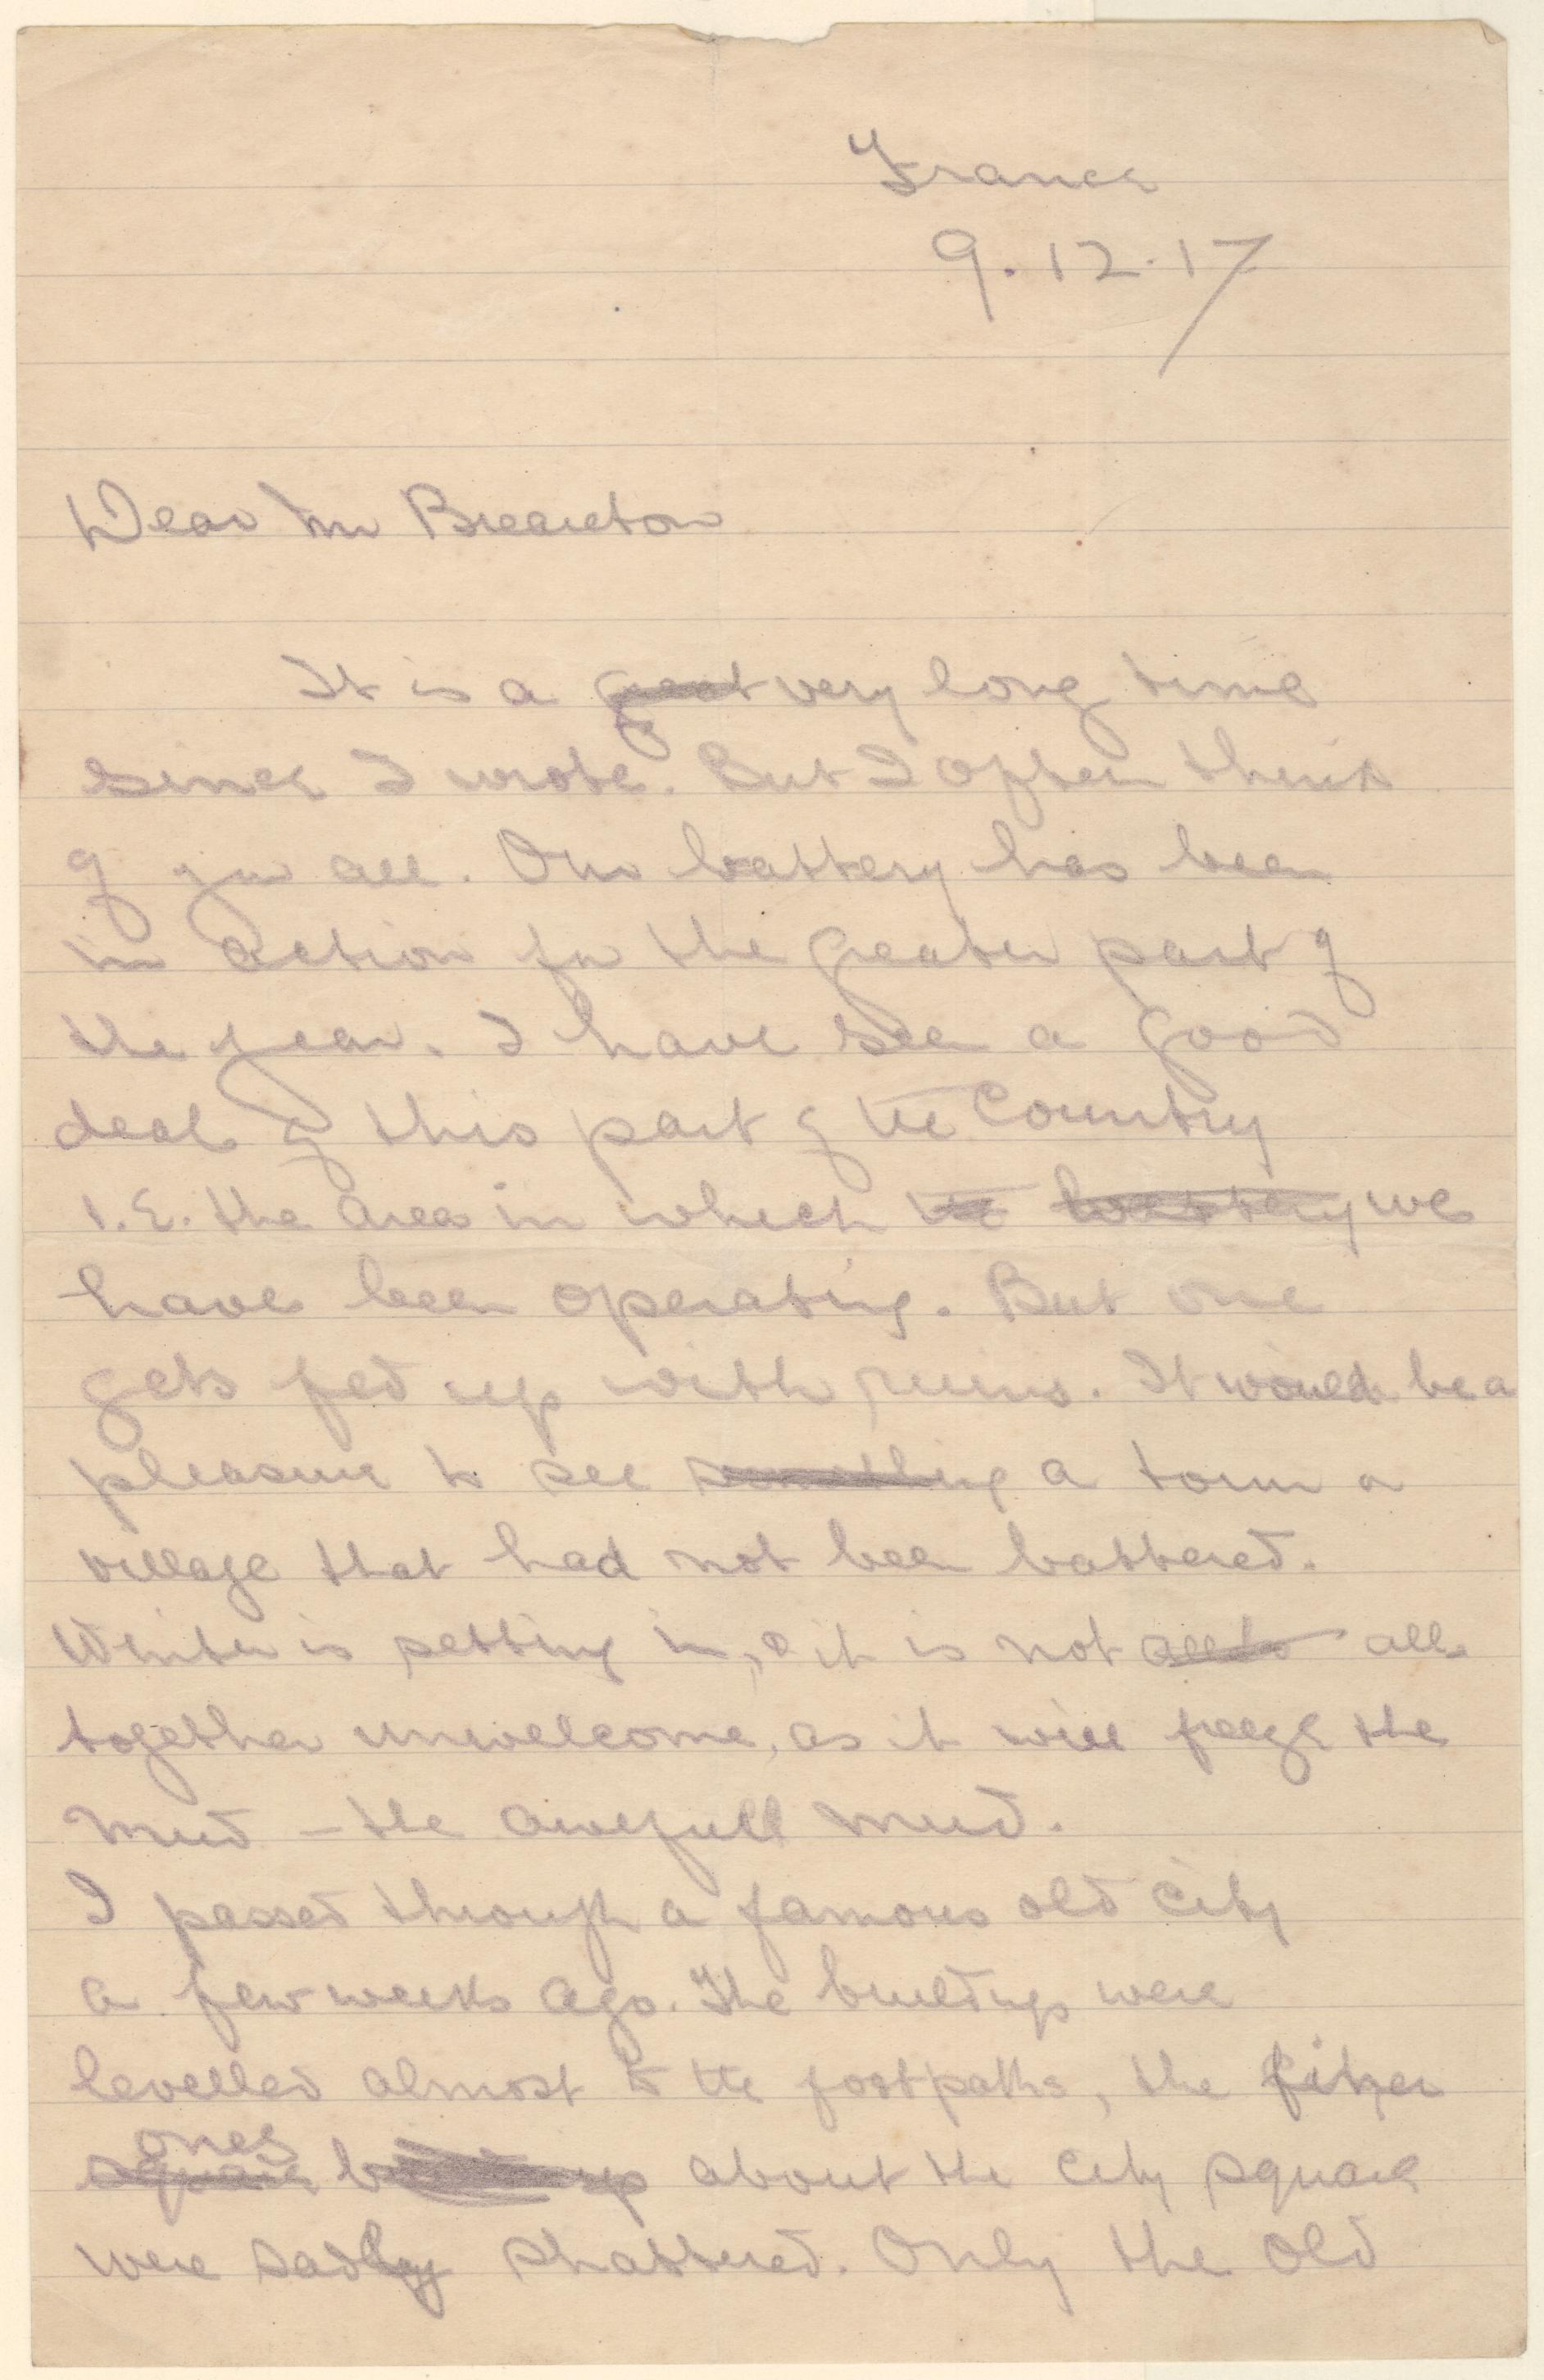 France
9.12.17
Dear Mr Brereton
It is a great very long time
since I wrote. But I often think
of you all. Our battery has been
in action for the greater part of
the year. I have seen a good
deal of this part of the Country
I.E. the area in which the battery we
have been operating. But one
gets fed up with ruins. It would be a
pleasure to see something a town or
village that had not been battered.
Winter is setting in, & it is not all
together unwelcome, as it will freeze the
mud – the awefull mud.
I passed through a famous old city
a few weeks ago. The buildings were
levelled almost to the footpaths, the
ones
square about the city square
were sadly shattered. Only the old